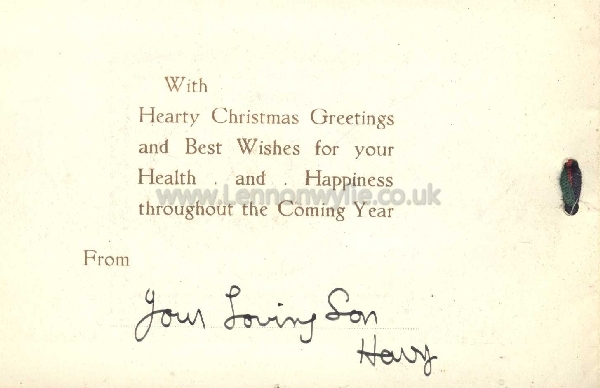 With
Hearty Christmas Greetings
and Best Wishes for your
Health . and . Happiness
www.Lennonwylie.co.uk
throughout the Coming Year
From
Your Loving Son
Harry